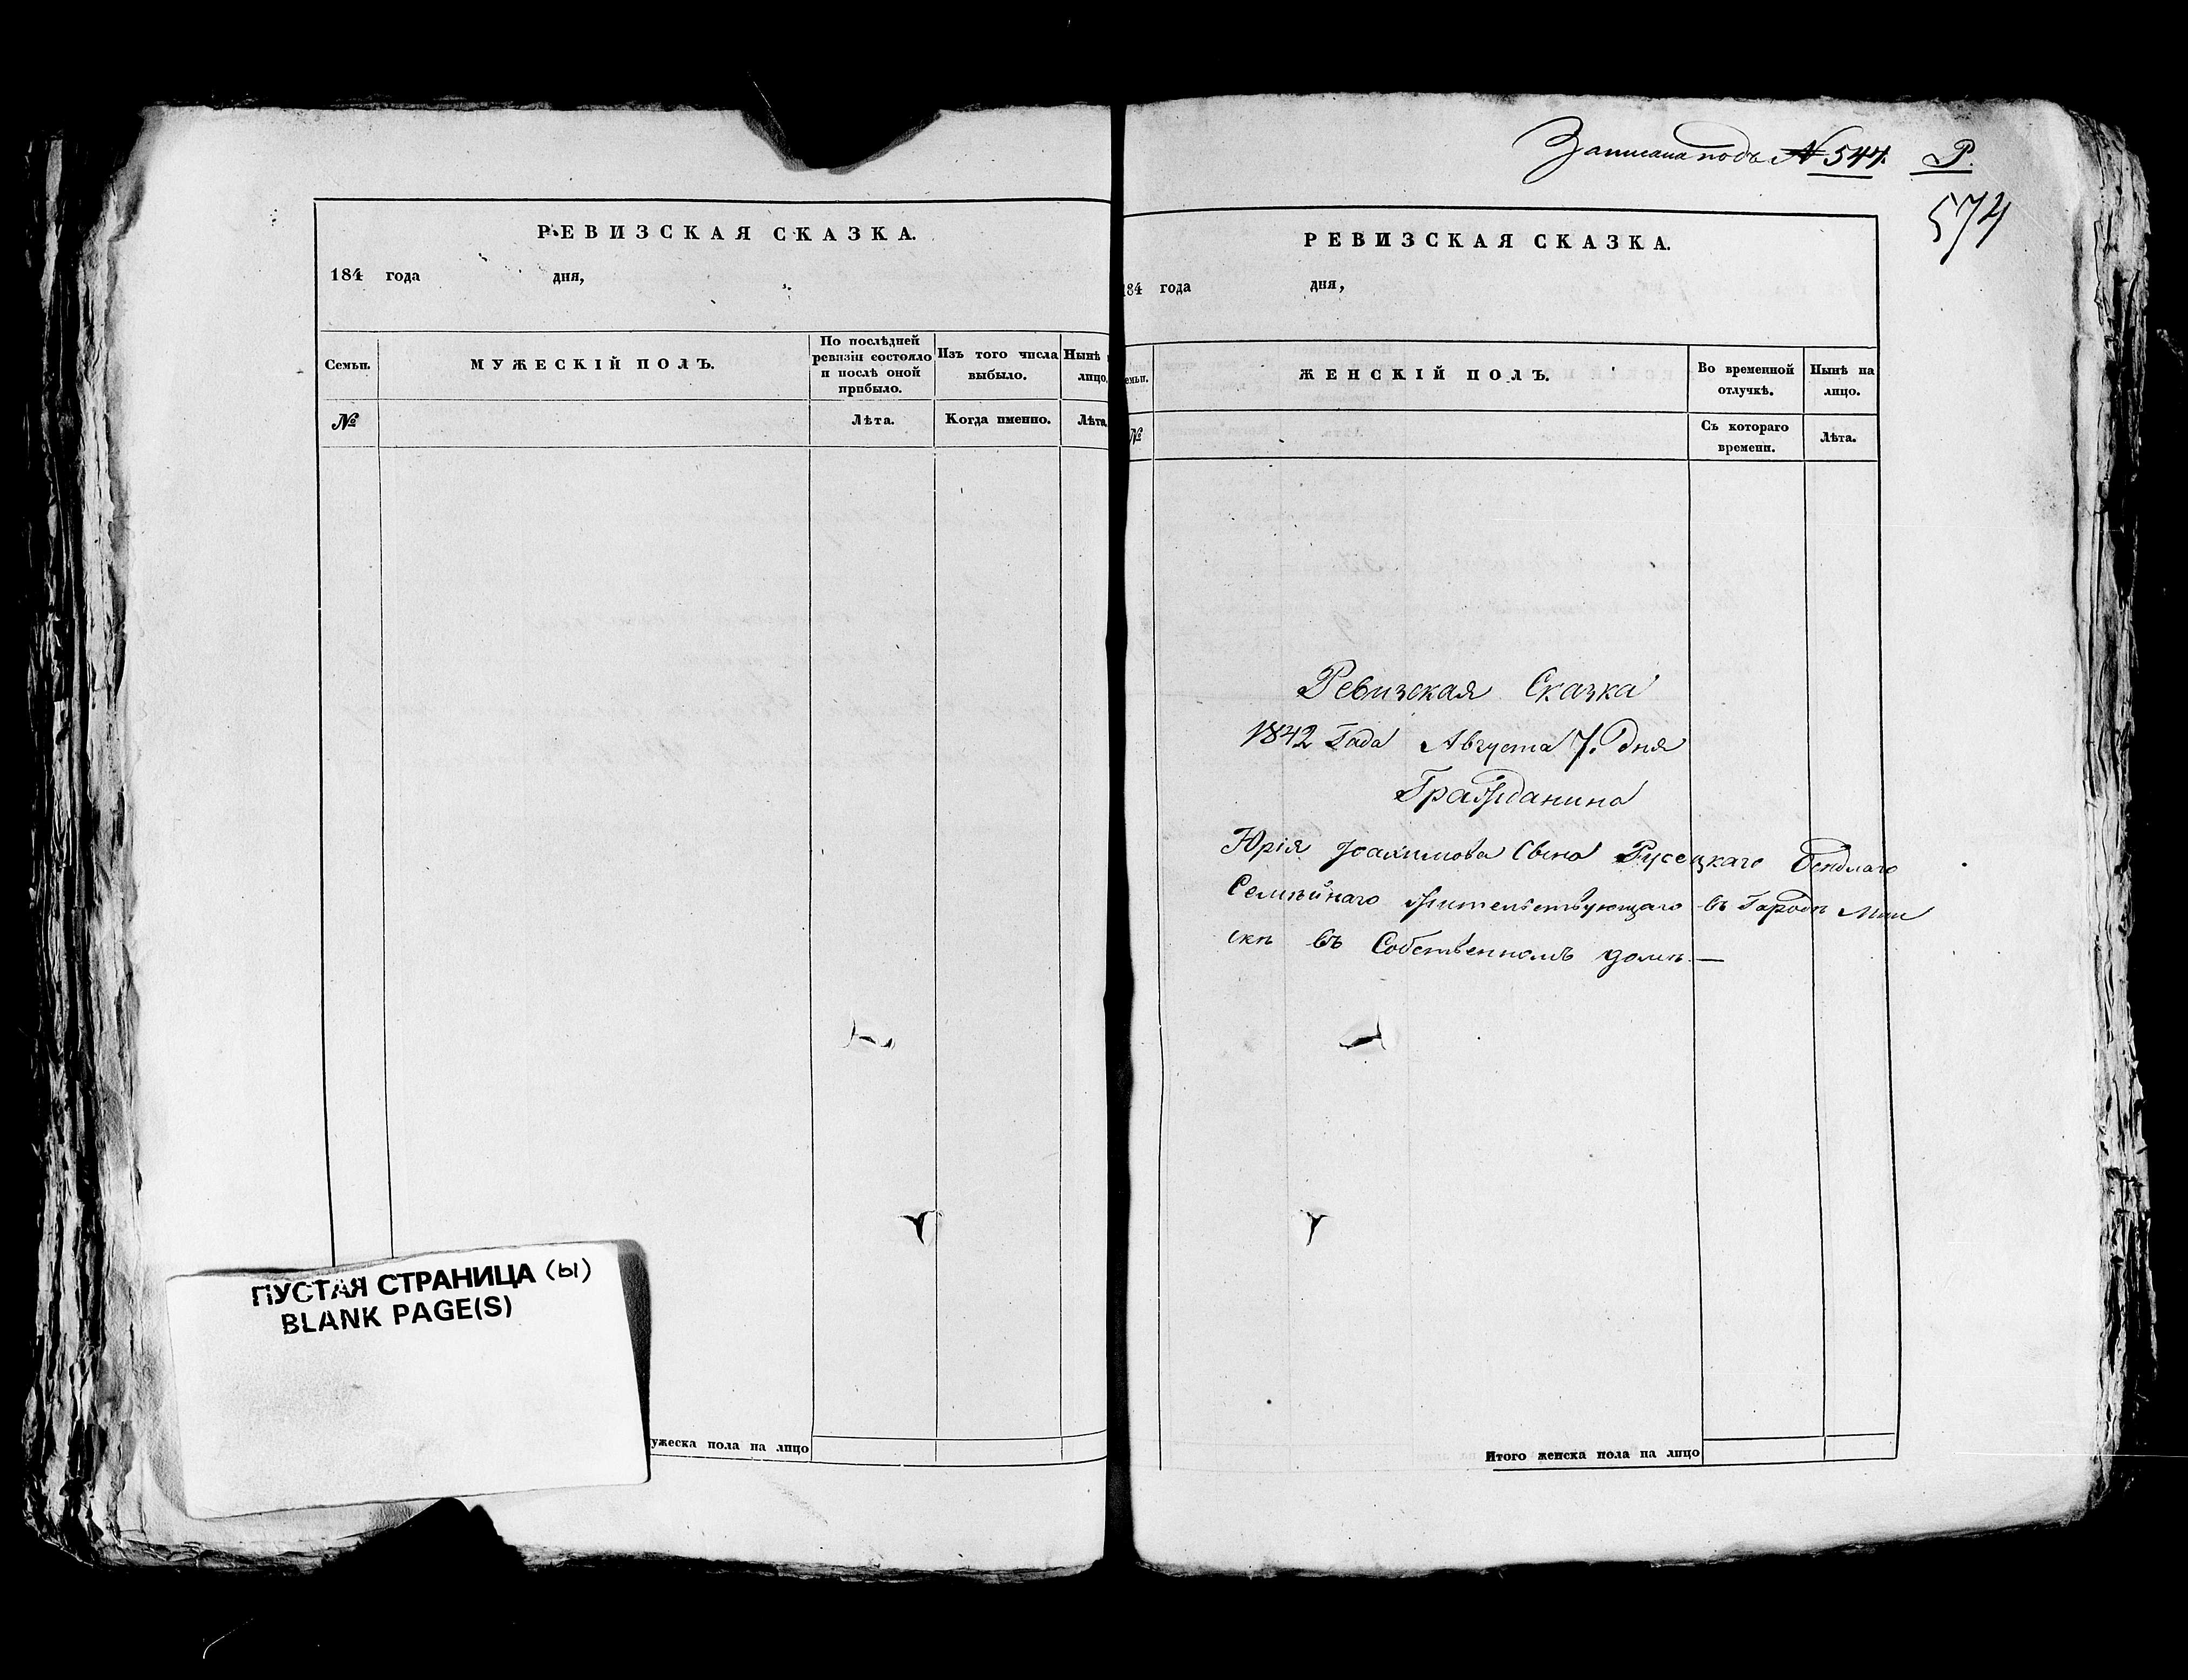 РЕВИЗСКАЯ СКАЗКА.
184 года дня,
Семьи.
МУЖЕСКІЙ ПОЛЪ.
По послѣдней
ревизіи состояло
и послѣ оной
прибыло.
Изъ того числа
выбыло.
Нынѣ
лицо
№
Лѣта.
Когда именно.
Лѣта
ПУСТАЯ СТРАНИЦА (Ы)
BLANK PAGE(S)
ужеска пола на лицо
Записана подъ № 544. Р.
574
РЕВИЗСКАЯ СКАЗКА.
184 года дня,
емьи.
ЖЕНСКІЙ ПОЛЪ.
Во временной
отлучкѣ.
Нынѣ на
лицо.
№
Съ котораго
времени.
Лѣта.
Ревизская Сказка
1842 Года Августа 7. дня
Гражданина
Юрія Іоахимова Сына Русецкаго
Семѣйнаго жительствующаго въ Городѣ Мин
скѣ въ Собственномъ домѣ.—
Итого женска пола на лицо